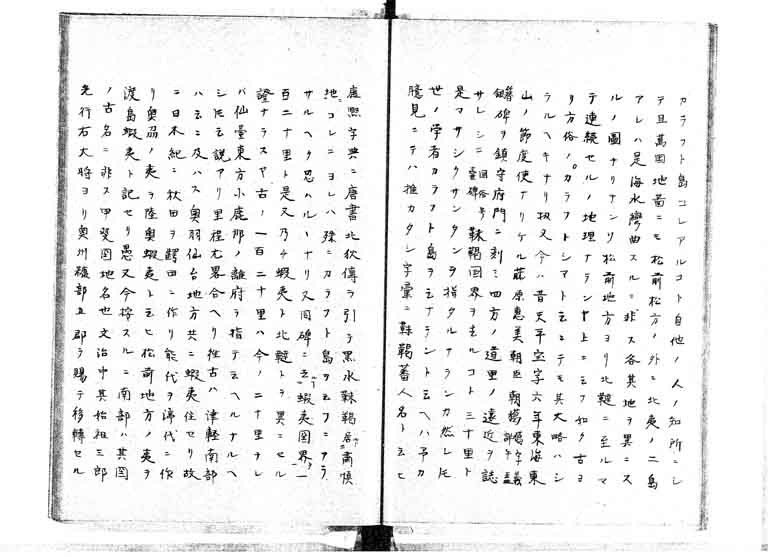 カラフト島コレアルコト自他ノ人ノ知所ニシ
テ且萬国地啚ニモ松前松方ノ外ニ北夷ノ二島
アレハ是海水彎曲スルニ非ス各其地ヲ異ニス
ルノ圖ナリナンソ松前地方ヨリ北韃ニ至ルマ
テ連続セルノ地理ナランヤ上ニ云フ如ク古ヨ
リ方俗ノカラフトシマト云ニテモ其大略ハシ
ラルヘキナリ扨又今ハ昔天平宝字六年東海東
山ノ節度使ナリケル藤原恵美朝臣朝葛
碑ヲ鎮守府門ニ刻ミ四方ノ道里ノ遠近ヲ誌
サレシニ 国俗号壷碑 靺鞨国界ヲ去ルコト三千里ト
是マサシクサンタンヲ指タルナランカ然レ𪜈
世ノ学者カラフト島ヲ云ナラント云ヘハ予カ
臆見ニテハ推カタシ字彙ニ靺鞨蕃人名ト云ヒ
康熙字典ニ唐書北狄傳ヲ引テ黒水靺鞨居肅慎
地コレニヨレハ殊ニカラフト島ヲ云フニアラ
サルヘク思ハルヽナリ又同碑ニ去蝦夷国界一
百二十里ト是又乃チ蝦夷ト北韃トヲ異ニセル
證ナラスヤ古ノ一百二十里ハ今ノ二十里ヲレ
バ仙臺東方小鹿郡ノ離府ヲ指テ云ヘルナルヘ
シ𪜈云説アリ里程尤畧合ヘリ往古ハ津軽南部
ハ云ニ及ハス奥羽仙台地方共ニ蝦夷住セリ故
ニ日本紀ニ秋田ヲ齶田ニ作リ能代ヲ渟代ニ作
リ奥刕ノ夷ヲ陸奥蝦夷ト云ヒ松前地方ノ夷ヲ
渡島蝦夷ト記セリ愚又今按スルニ南部ハ其国
ノ古名ニ非ス甲斐国地名也文治中其始祖三郎
光行右大将ヨリ奥州糠部五郡ヲ賜テ移轉セル